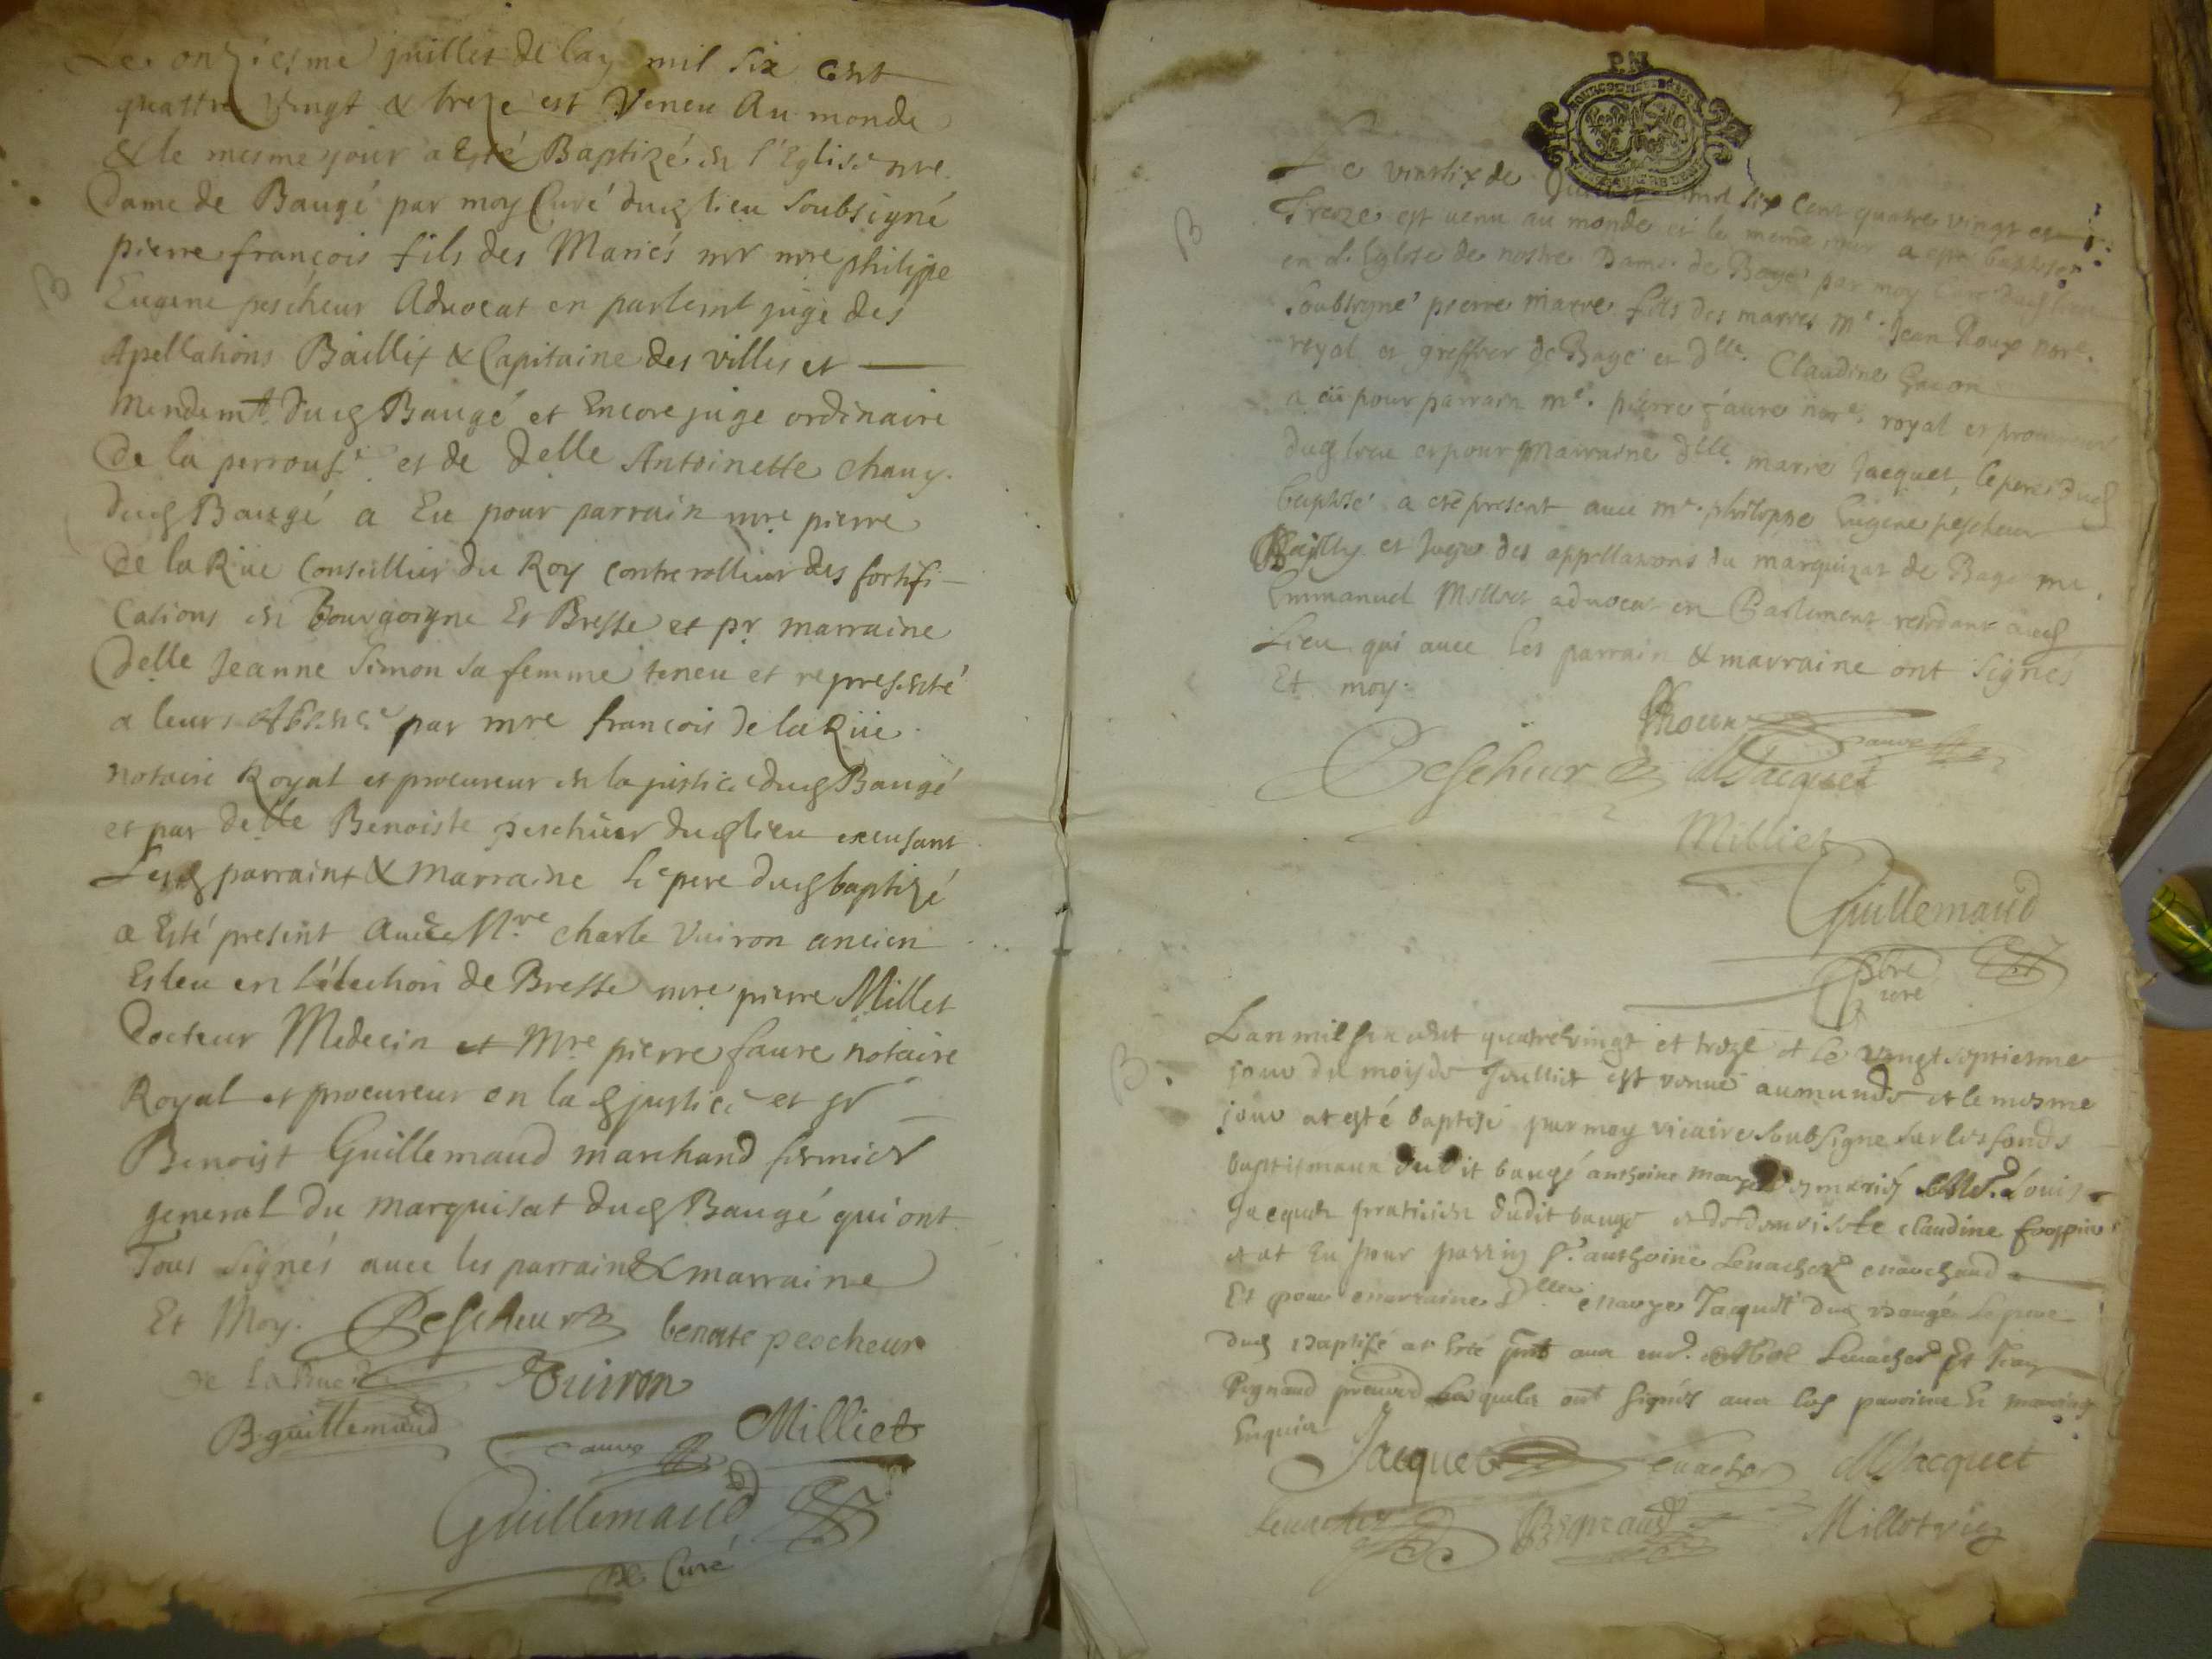 Le onziesme juillet de lan mil six cent
quattre vingt & treze est Veneu Au monde
& le mesme jour a Esté Baptizé en l'Eglise nre
Dame de Baugé par moy Curé dud lieu soubsigné
pierre françois fils des Mariés mr mre philippe
Eugene pescheur Advocat en parlemt juge des
Apellations Baillif & Capitaine des villes et
Mandemt dud Baugé et Encore juge ordinaire
de la perrouse et de Delle Antoinette chany
dud Baugé a Eu pour parrain mre pierre
De la Rüe Conseillier du Roy contrerolleur des fortifi-
cations en Bourgoigne Et Bresse et pr marraine
Delle Jeanne Simon sa femme teneu et represente
a leurs Absence par mre françois De la Rüe
notaire Royal et procureur en la justice dud Baugé
et par Delle Benoiste pescheur dud lieu excusant
Lesd parraint & Marraine Le pere dud baptizé
a Esté present Avec Mre charle Vuiron ancien
Esleu en l'élection de Bresse mre pierre Milliet
Docteur Medecin et Mre pierre faure notaire
Royal et procureur en lad justice et sr
Benoist Guillemaud marchand fermier
general du marquisat dud Baugé qui ont
Tous signés avec les parrain & marraine
Et Moy. Pescheur benoite pescheur
De La Rue Vuiron
B guillemaud faure Milliet
Guillemaud
Curé
Le vinsix de mil six cent quatre vingt et
Treize est venu au monde et le meme jour a este baptise
en L'Eglise de nostre Dame de Bagé par moy Curé dud lieu
soubsigné pierre marie fils des maries Me Jean Roux nore
royal et greffier de Bagé et dlle Claudine Gacon
a eü pour parrain me pierre faure nore royal et procureur
dud lieu et pour Marraine dlle marie Jacquet, le pere dud
baptisé a eté present avec mr philippe Eugene pescheur
Bailly et Juge des appellations du marquizat de Bage me
Emmanuel Milliet advocat en Parlement residant aud
Lieu qui avec les parrain & marraine ont signés
Et moy.
Roux faure
Pescheur M Jacquet
Milliet
Guillemaud
pbre
cure
L'an mil six cent quatre vingt et treze et le vingt septiesme
jour du mois de Juilliet est venu au munde et le mesme
jour at esté baptisé par moy vicaire soubsigne sur les fonds
baptismaux dudit baugé anthoine mariés Louis
Jacquet praticien dudit baugé et de demoiselle claudine
et at Eu pour parrin sr anthoine Levacher marchand
Et pour marraine Dlle marye Jaquet dud Baugé Le pere
dud Baptisé at Esté pnt avec Levacher Et Jean
Pignaud Lesquels ont signés avec les parrins Et marine
Enquis
Jacquet Levacher M Jacquet
Levacher Millot vic